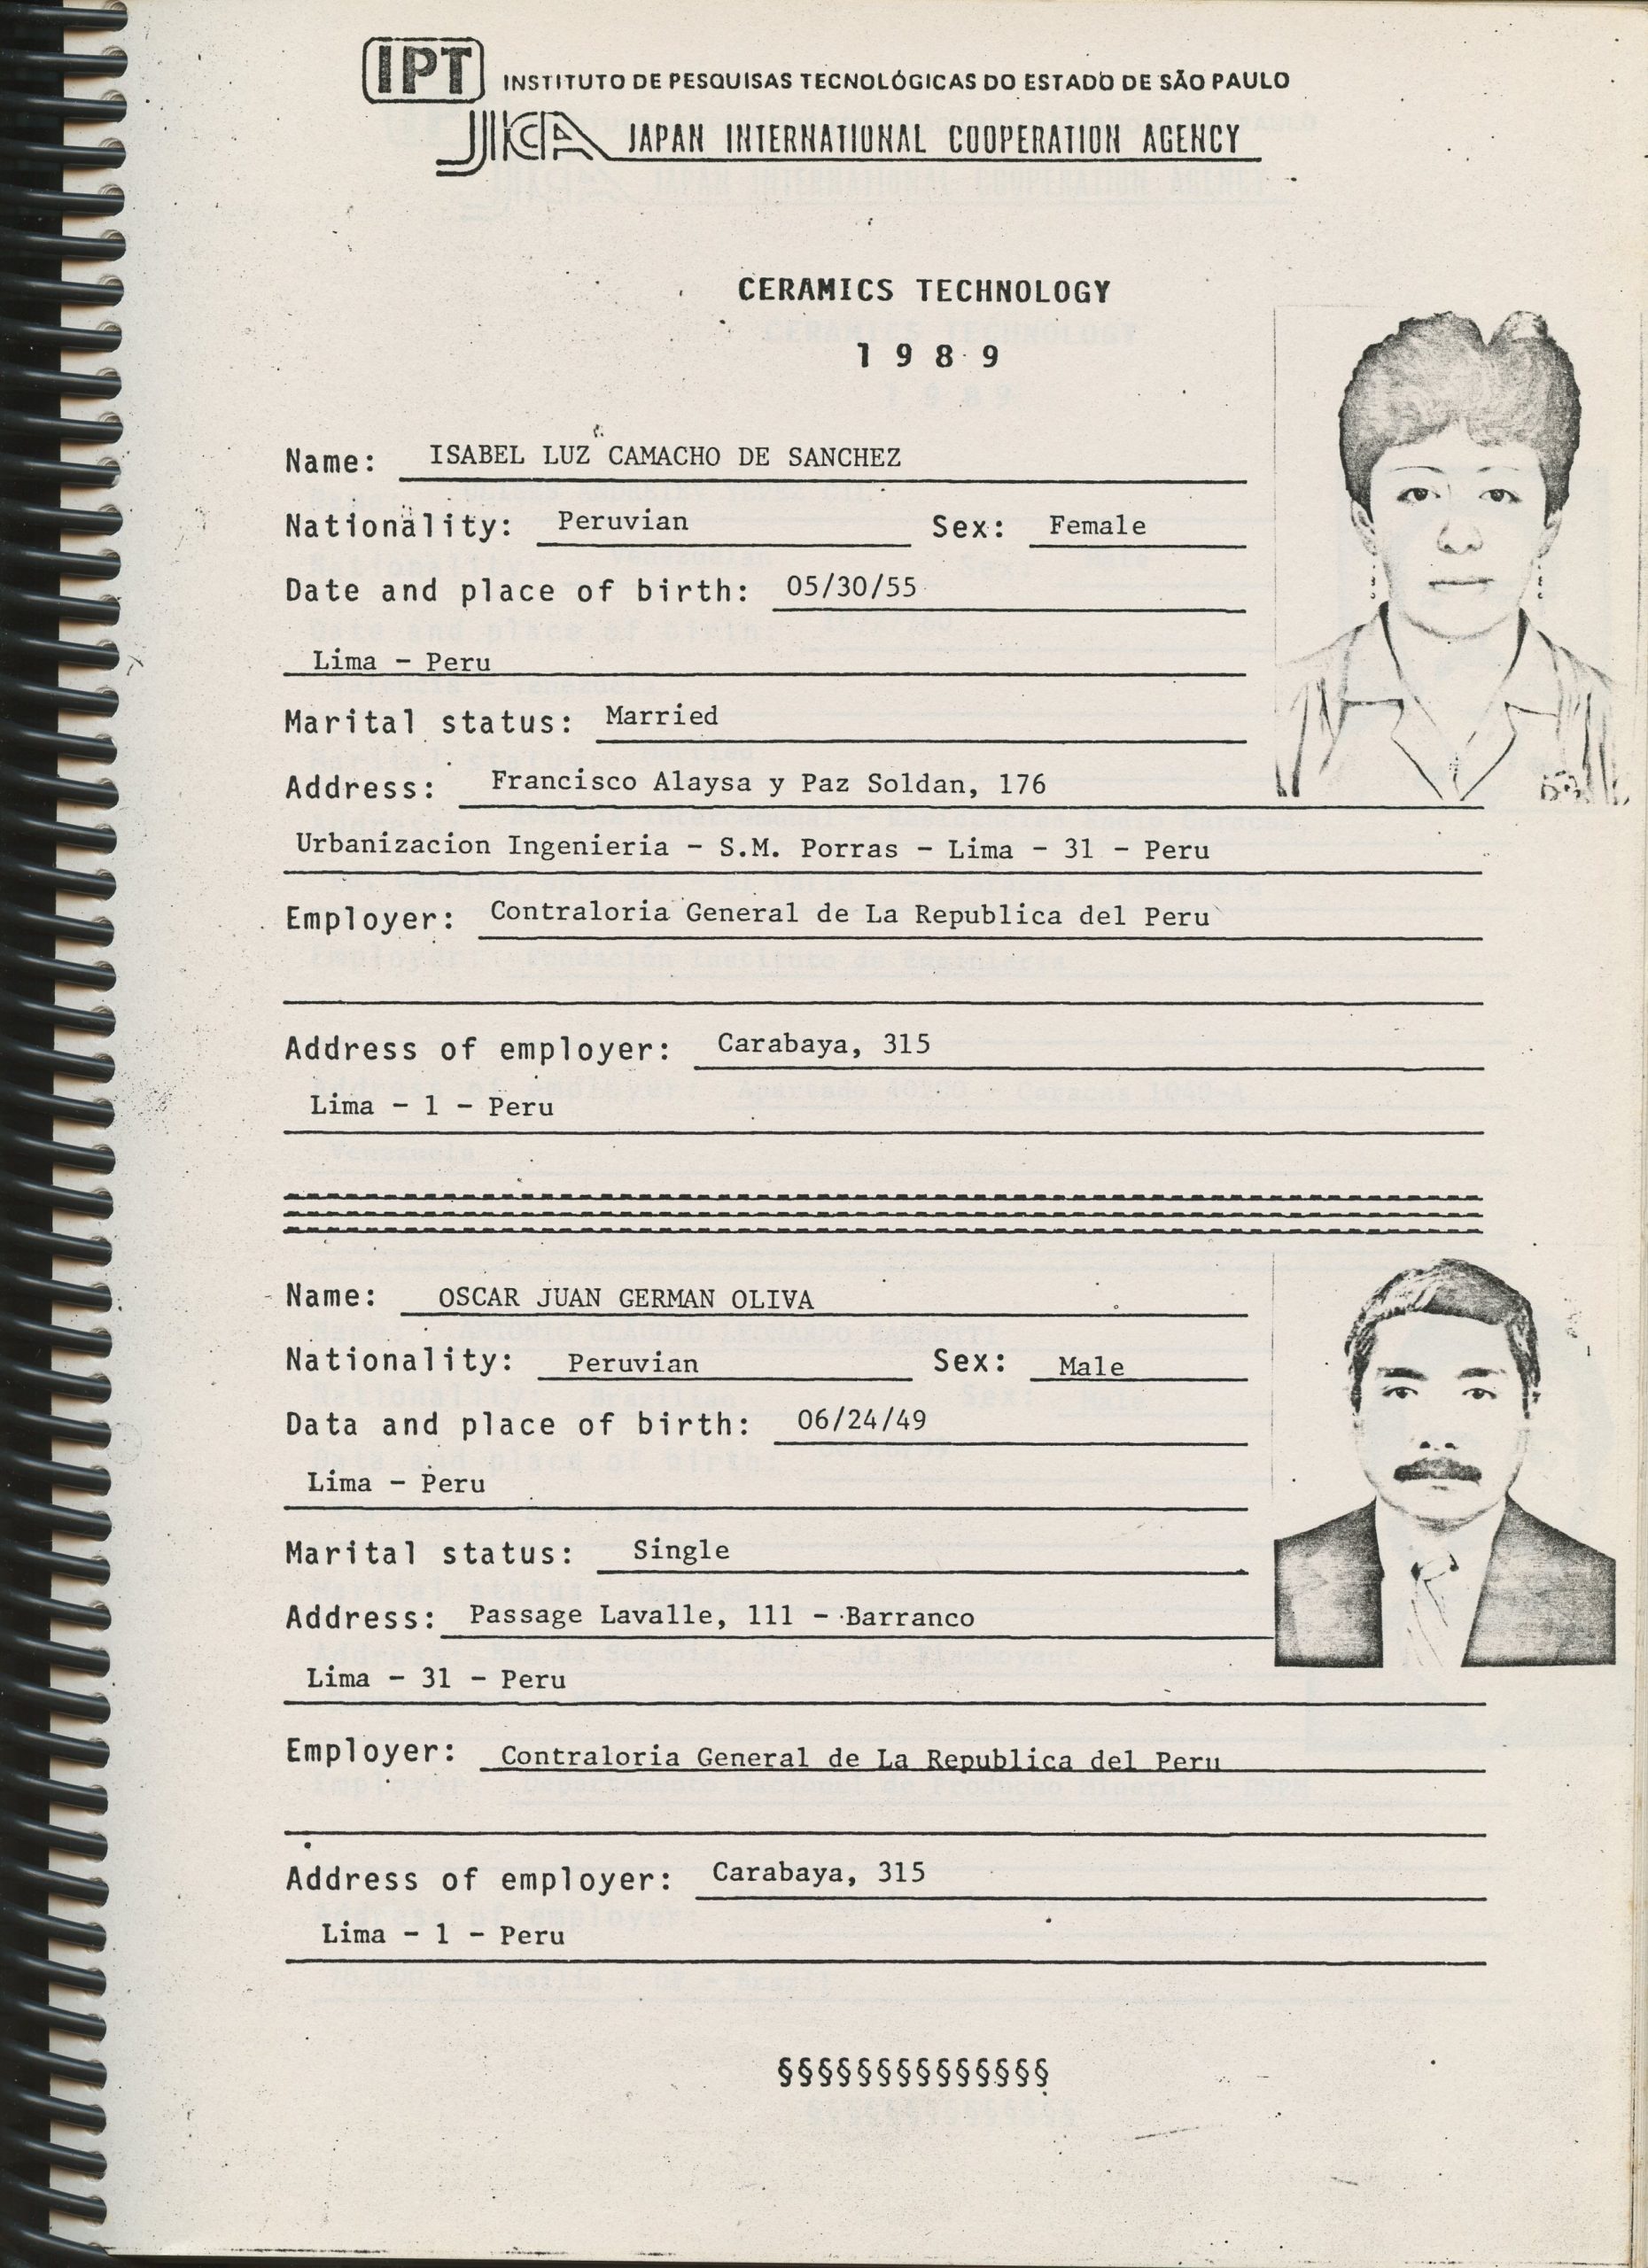 IPT INSTITUTO DE PESQUISAS TECNOLÓGICAS DO ESTADO DE SÃO PAULO
JICA JAPAN INTERNATIONAL COOPERATION AGENCY
CERAMICS TECHNOLOGY
1 9 8 9
Name: ISABEL LUZ CAMACHO DE SANCHEZ
Nationality: Peruvian Sex: Female
Date and place of birth: 05/30/55
Lima - Peru
Marital status: Married
Address: Francisco Alaysa y Paz Soldan, 176
Urbanizacion Ingenieria - S.M. Porras - Lima - 31 - Peru
Employer: Contraloria General de La Republica del Peru
Address of employer: Carabaya, 315
Lima - 1 - Peru
Name: OSCAR JUAN GERMAN OLIVA
Nationality: Peruvian Sex: Male
Data and place of birth: 06/24/49
Lima - Peru
Marital status: Single
Address: Passage Lavalle, 111 - Barranco
Lima - 31 - Peru
Employer: Contraloria General de La Republica del Peru
Address of employer: Carabaya, 315
Lima - 1 - Peru
§§§§§§§§§§§§§§